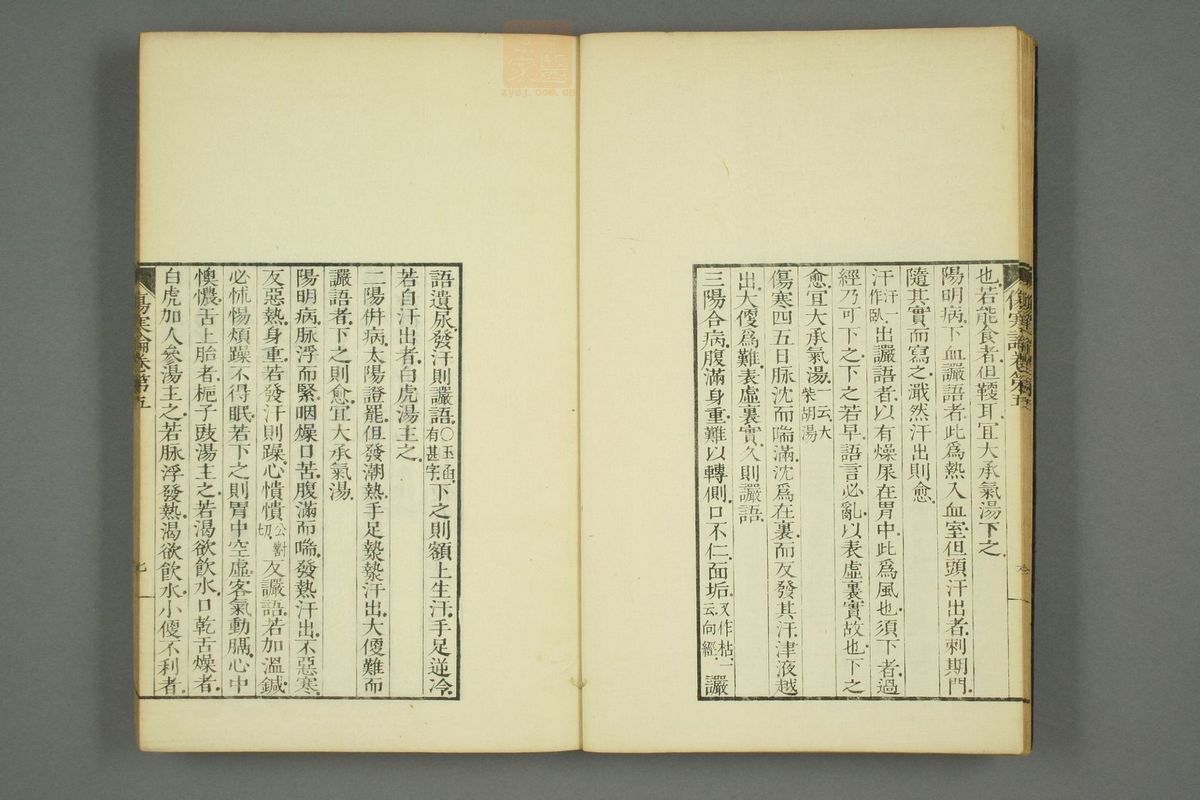 也若能食者但鞕耳宜大承氣湯下之
陽明病下血讝語者此爲熱入血室但頭汗出者刺期門
隨其實而寫之濈然汗出則愈
汗汗一作臥出讝語者以有燥屎在胃中此爲風也須下者過
經乃可下之下之若早語言必亂以表虛裏實故也下之
愈宜大承氣湯一云大柴胡湯
傷寒四五日脉沈而喘滿沈爲在裏而反發其汗津液越
出大便爲難表虛裏實久則讝語
三陽合病腹滿身重難以轉側口不仁面垢又作枯一云向經讝
語遺尿發汗則讝語○玉函有甚字下之則額上生汗手足逆冷
若自汗出者白虎湯主之
二陽併病太陽證罷但發潮熱手足漐漐汗出大便難而
讝語者下之則愈宜大承氣湯
陽明病脉浮而緊咽燥口苦腹滿而喘發熱汗出不惡寒
反惡熱身重若發汗則躁心憒憒公對切反讝語若加溫鍼
必怵惕煩躁不得眠若下之則胃中空虛客氣動膈心中
懊憹舌上胎者梔子豉湯主之若渴欲飲水口乾舌燥者
白虎加人參湯主之若脉浮發熱渴欲飲水小便不利者
傷寒論卷第五